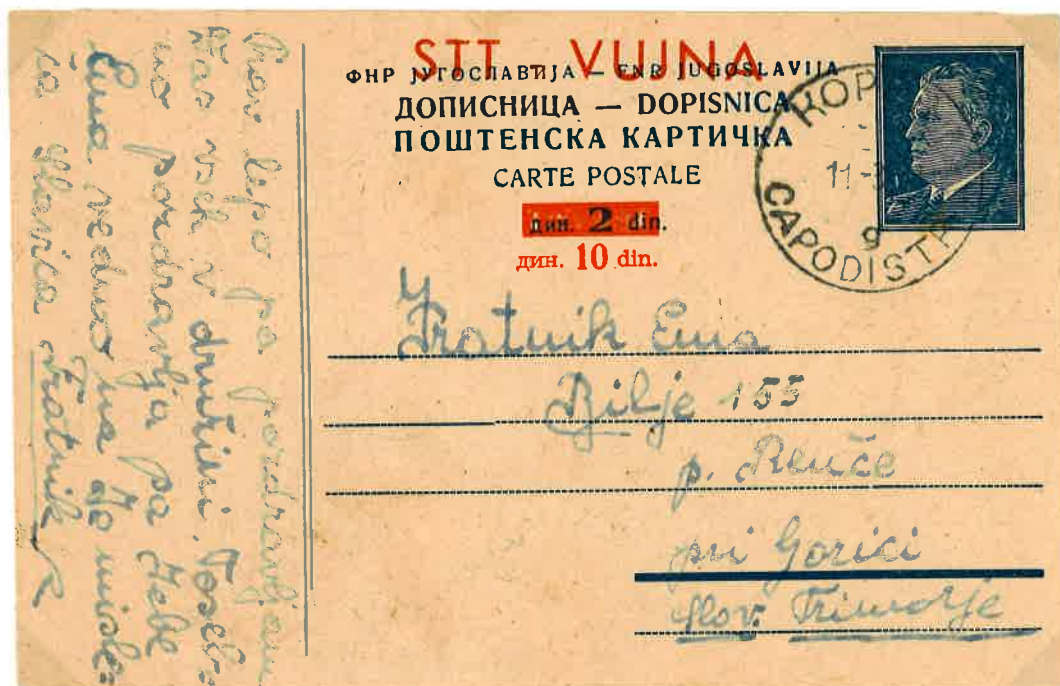 STT - VUJNA
ФНР ЈУГОСЛАВИЈА — FNR JUGOSLAVIJA
ДОПИСНИЦА — DOPISNICA
ПОШТЕНСКА КАРТИЧКА
CARTE POSTALE
дин. 2 din.
дин. 10 din.
11
9
CAPODIST
Fratnik Ema
Bilje 155
p. Renče
pri Gorici
Slov. Primorje
lepo pa pozdravljam
Vas vseh v družini. Poseb-
no pozdravlja pa Tebe
Ema vedno na Te misle-
ča Slavica Fratnik